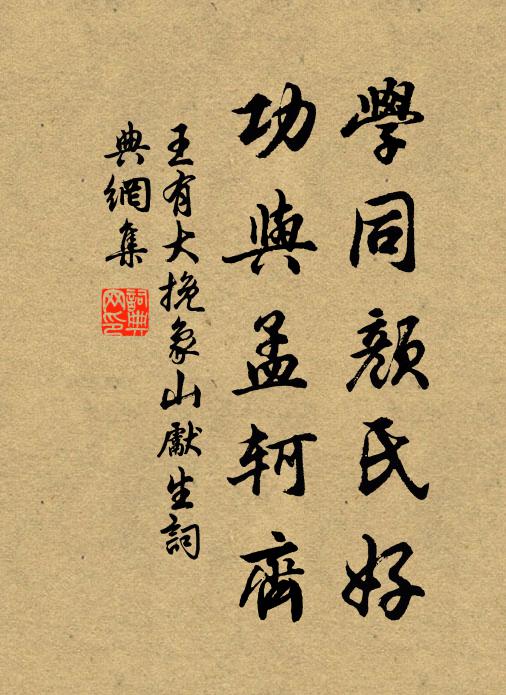 學同顏氏好
功與孟軻齊
王有大挽象山獻生詞
典網集
詞典網印